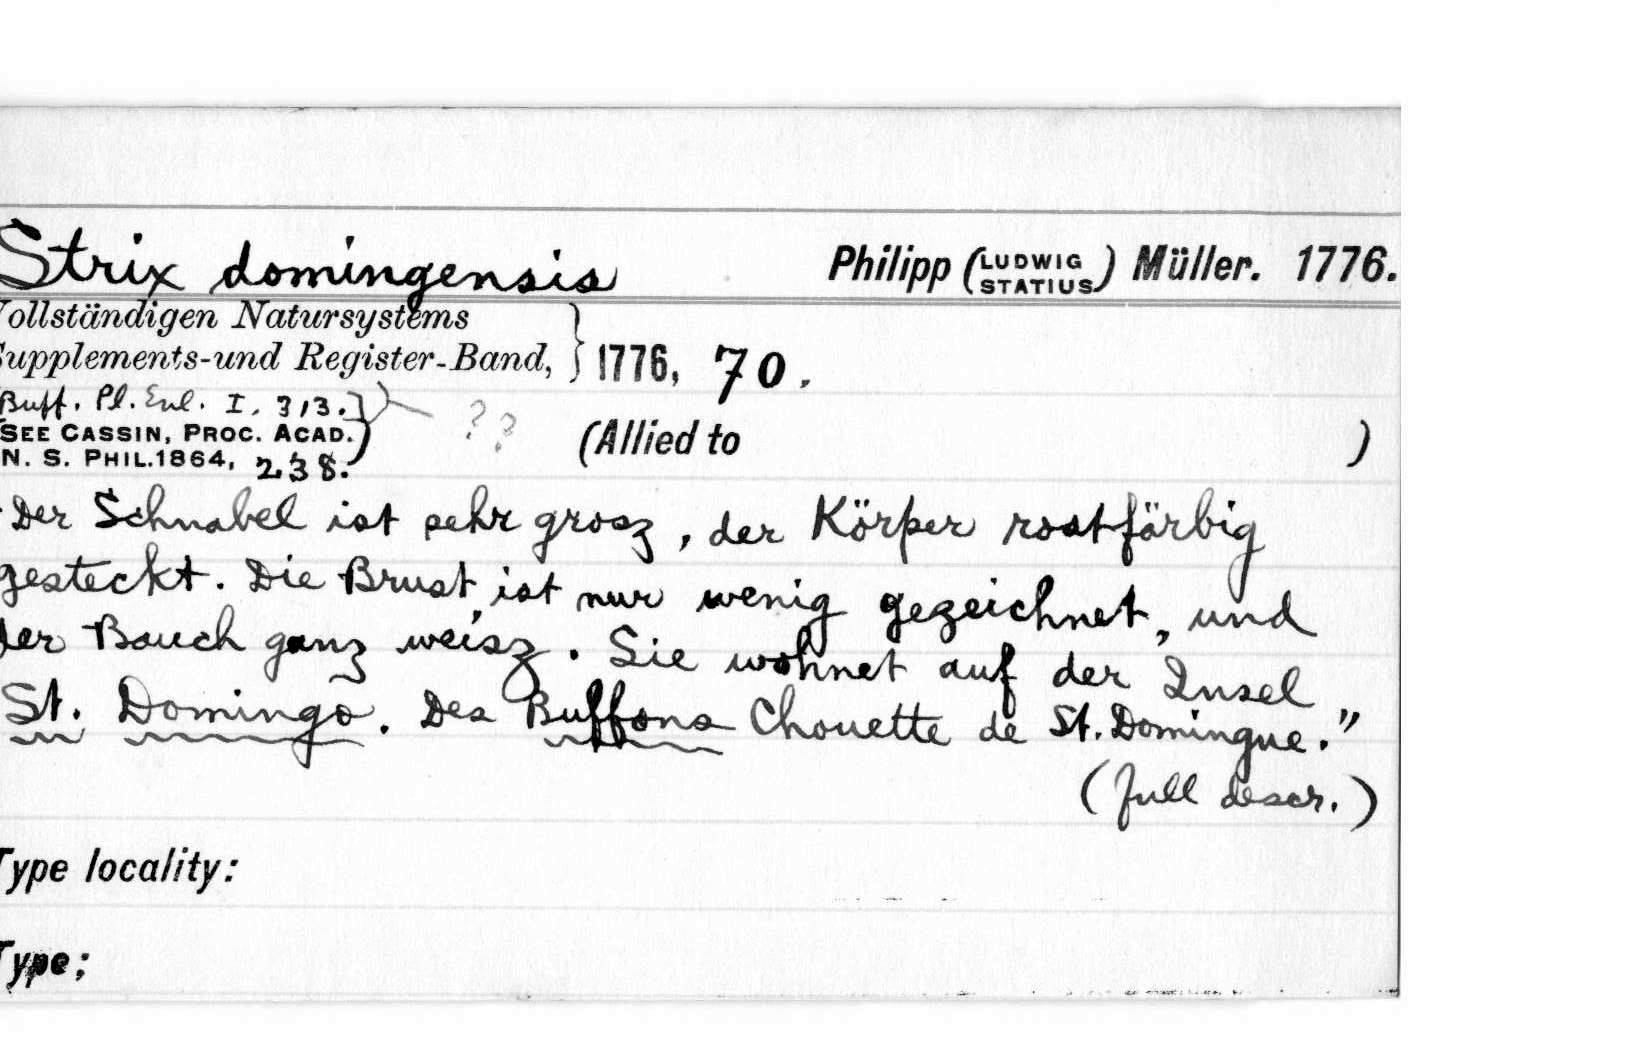 Strix domingensis Philipp (LUDWIG STATIUS) Müller. 1776.
Vollständigen Natursystems
Supplements-und Register-Band, } 1776, 70.
[Buff. Pl. Enl. I, 313.] ??
(SEE CASSIN, PROC. ACAD. (Allied to )
N. S. PHIL. 1864, 238.)
Der Schnabel ist sehr grosz, der Körper rostfärbig
gesteckt. Die Brust ist nur wenig gezeichnet, und
der Bauch ganz weisz. Sie wohnet auf der Insel
St. Domingo. Des Buffons Chouette de St. Domingue."
(full descr.)
Type locality:
Type;